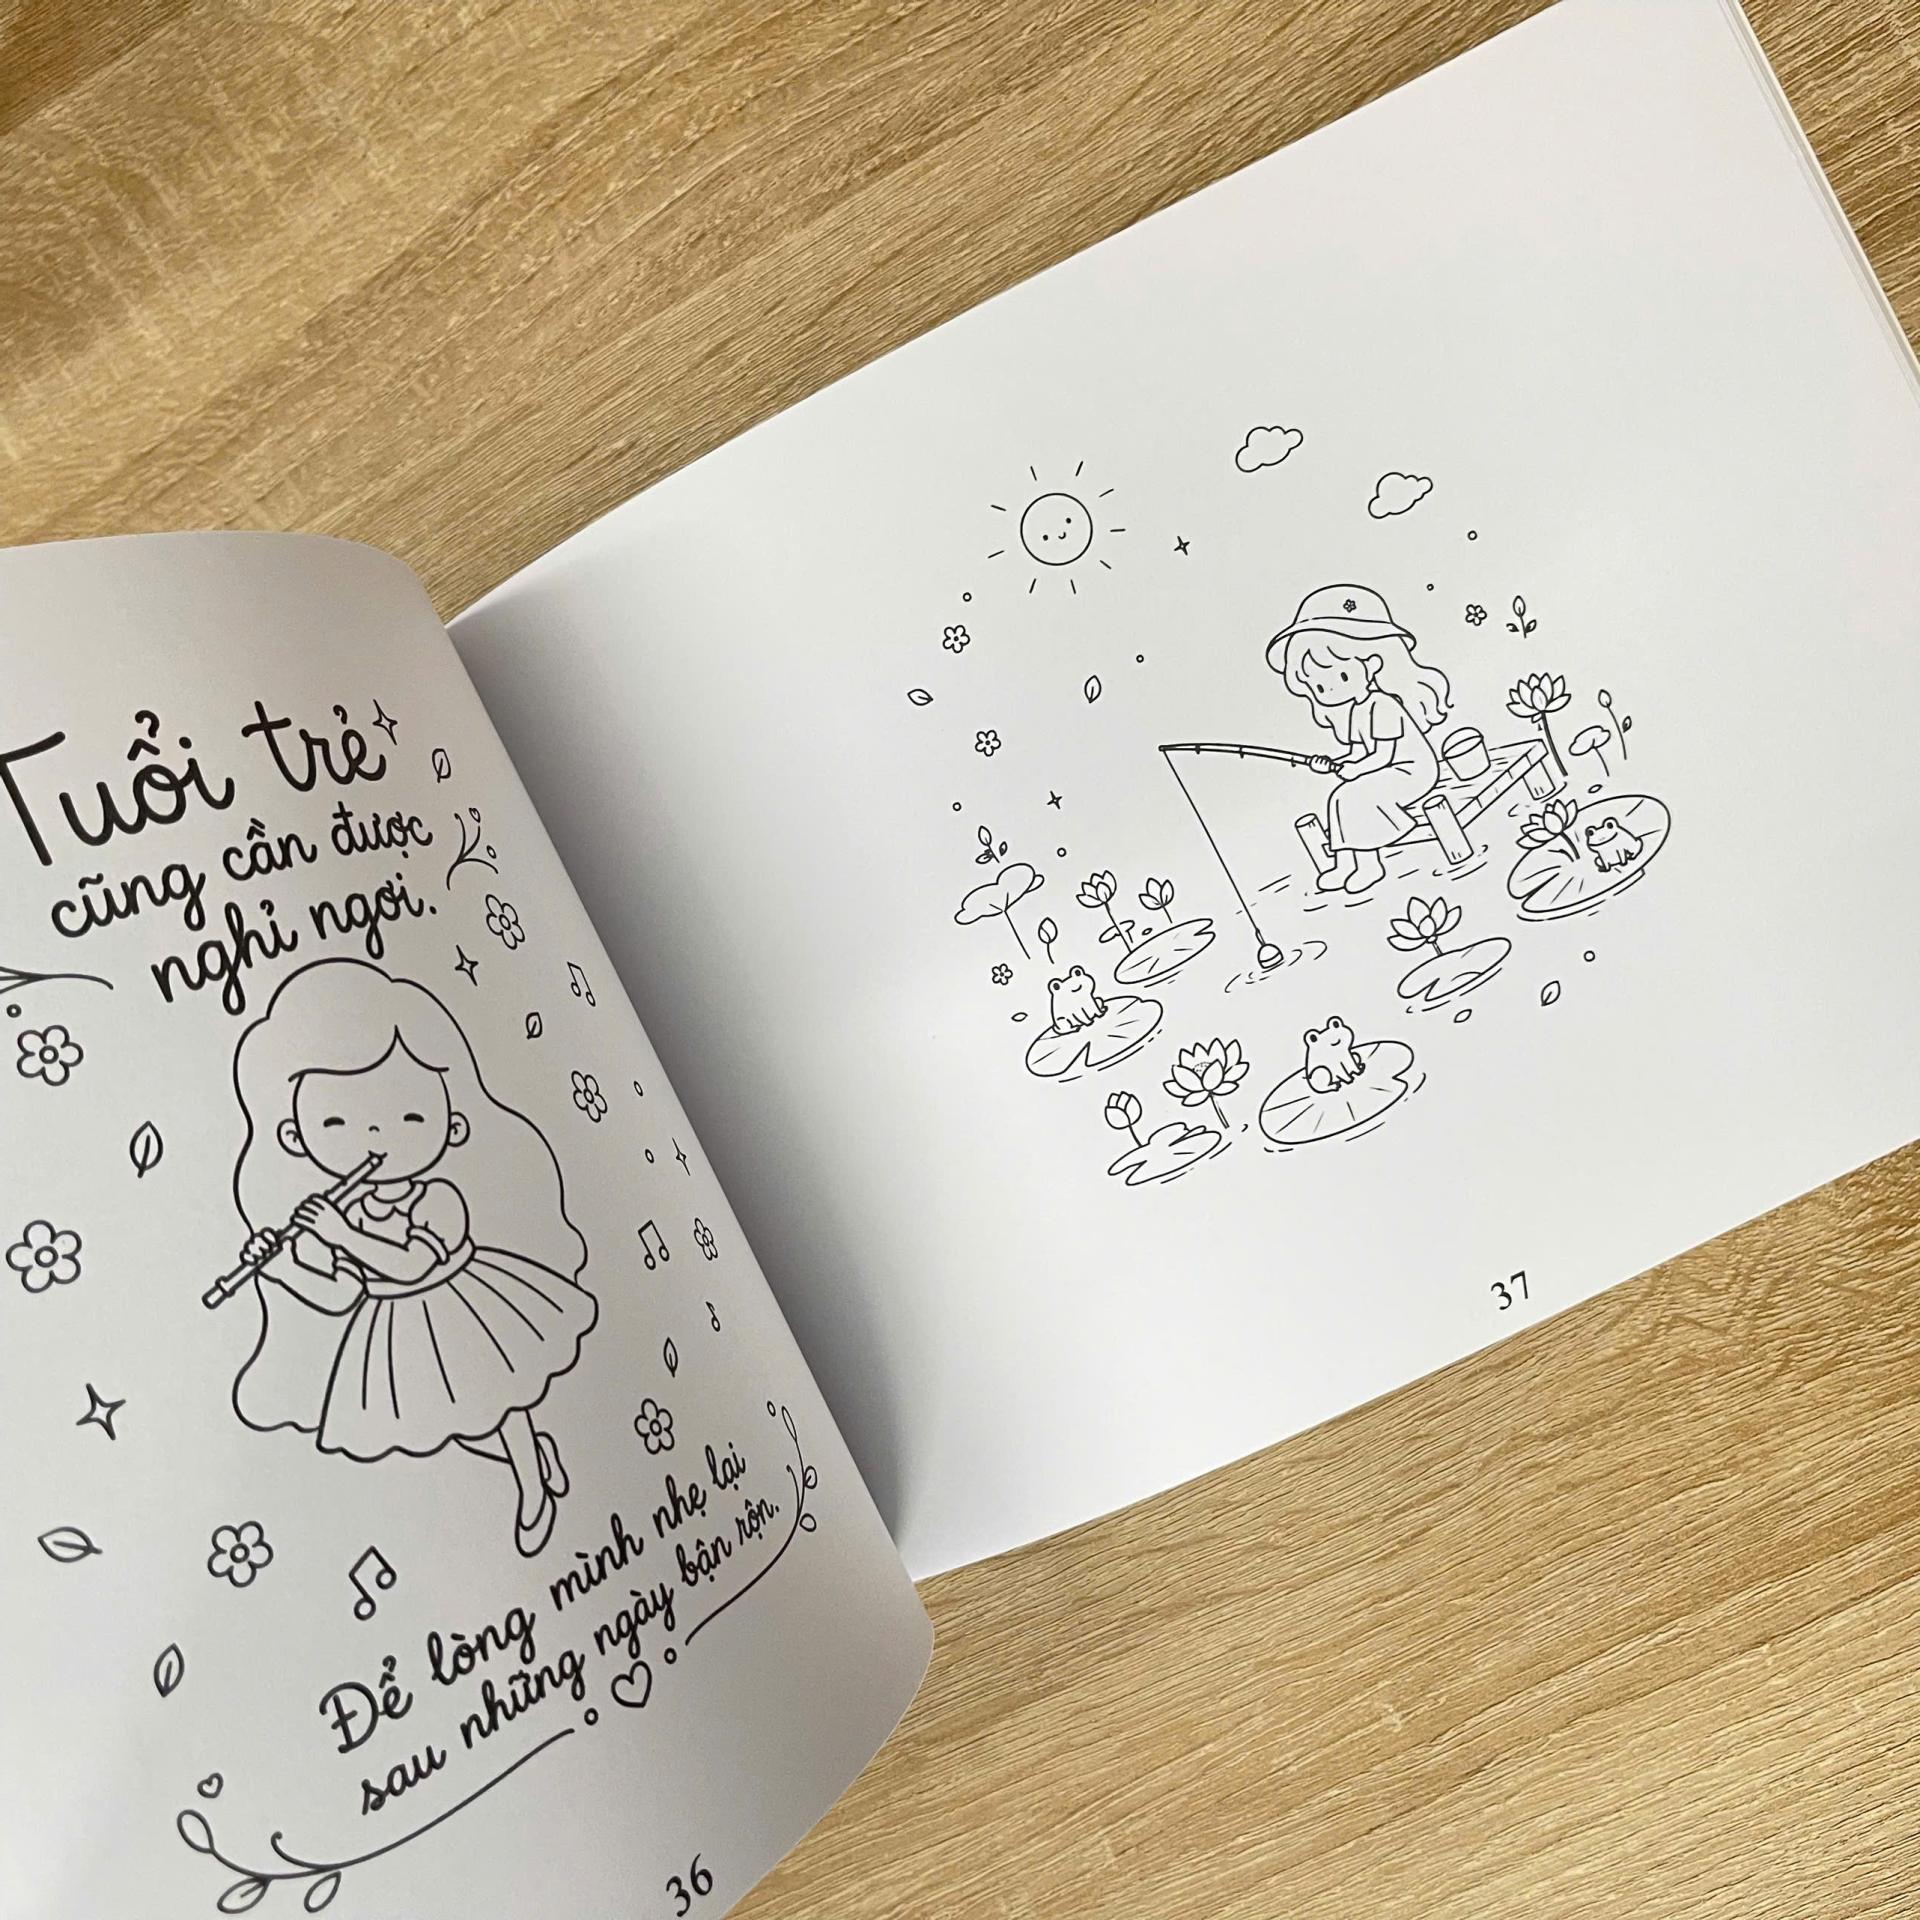 Tuổi trẻ
cũng cần được
nghỉ ngơi.
Để lòng mình nhẹ lại
sau những ngày bận rộn.
36
37